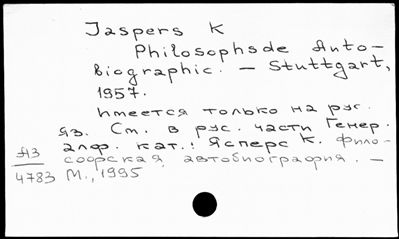 Jaspers K
Philosophsde Auto-
Biographic. — Stuttgart,
1957.
Имеется только на рус.
яз. См. в рус. части Генер.
алф. кат.: Ясперс К. Фило-
А3
софская автобиография. —
4783 М., 1995